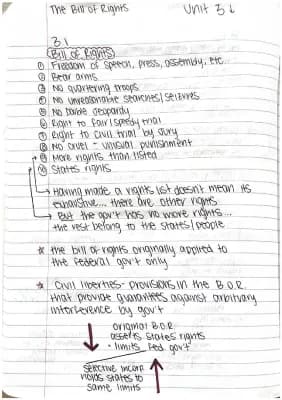 The Bill of Rights
Unit 3
3.1
Bill of Rights
① Freedom of speech, press, assembly, etc...
② Bear arms
③ No quartering troops
④ No unreasonable searches/seizures
⑤ No Double Jeopardy
⑥ Right to fair/speedy trial
⑦ Right to civil trial by jury
⑧ No cruel + unusual punishment
⑨ More rights than listed
⑩ States rights
Having made a rights list doesn't mean its
exhaustive... there are other rights
But the gov't has no more rights...
the rest belong to the states/people
* the bill of rights originally applied to
the federal gov't only
* Civil liberties- provisions in the B.O.R.
that provide guarantees against arbitrary
interference by gov't
original B.O.R.
asserts states rights
+ limits Fed. gov't
selective incorp.
holds states to
same limits